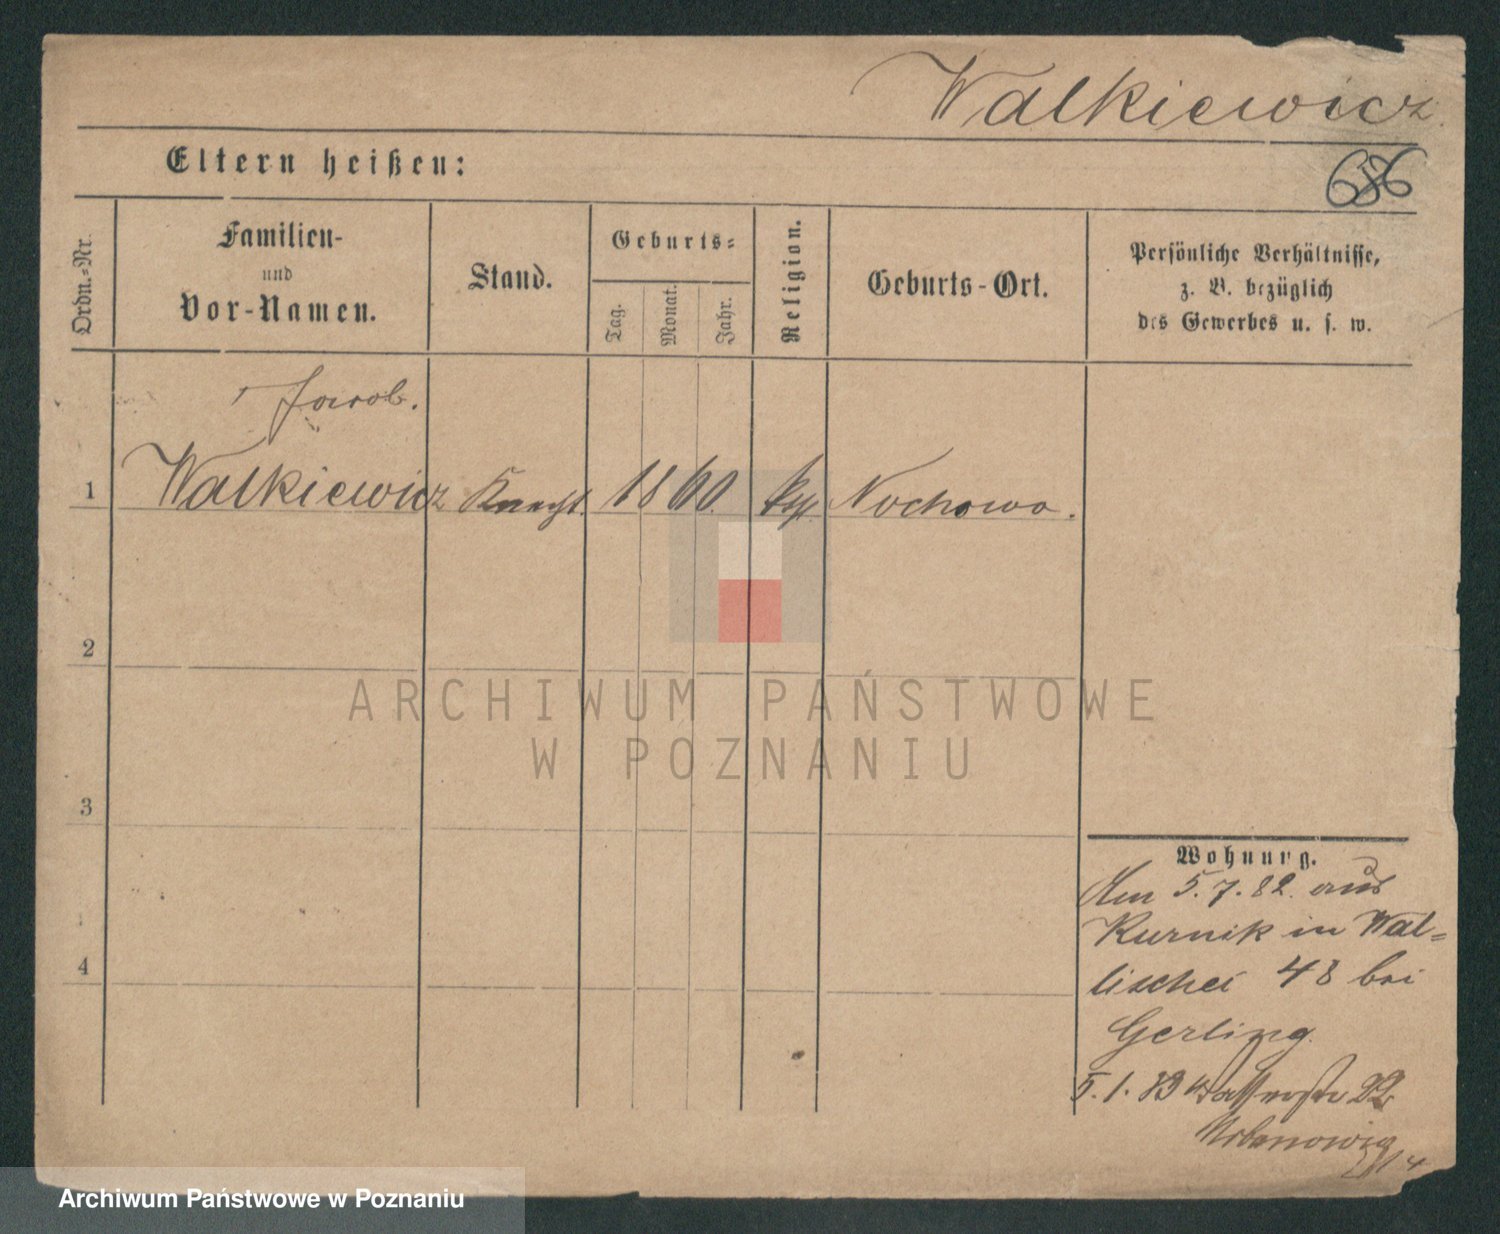 Walkiewicz.
Eltern heißen:
686
Ordn.=Nr.
Familien-
und
Vor-Namen.
Stand.
Geburts=
Tag.
Monat.
Jahr.
Religion.
Geburts-Ort.
Persönliche Verhältnisse,
z. B. bezüglich
des Gewerbes u. s. w.
Jacob.
1 Walkiewicz Knecht. 1860. Nochowo.
2
3
4
ARCHIWUM PAŃSTWOWE
W POZNANIU
Wohnung.
Am 5.7.82. aus
Kurnik in Wal=
lischei 48 bei
Gerling.
5.1.83 Wasserstr 22
Urbanowicz
Archiwum Państwowe w Poznaniu